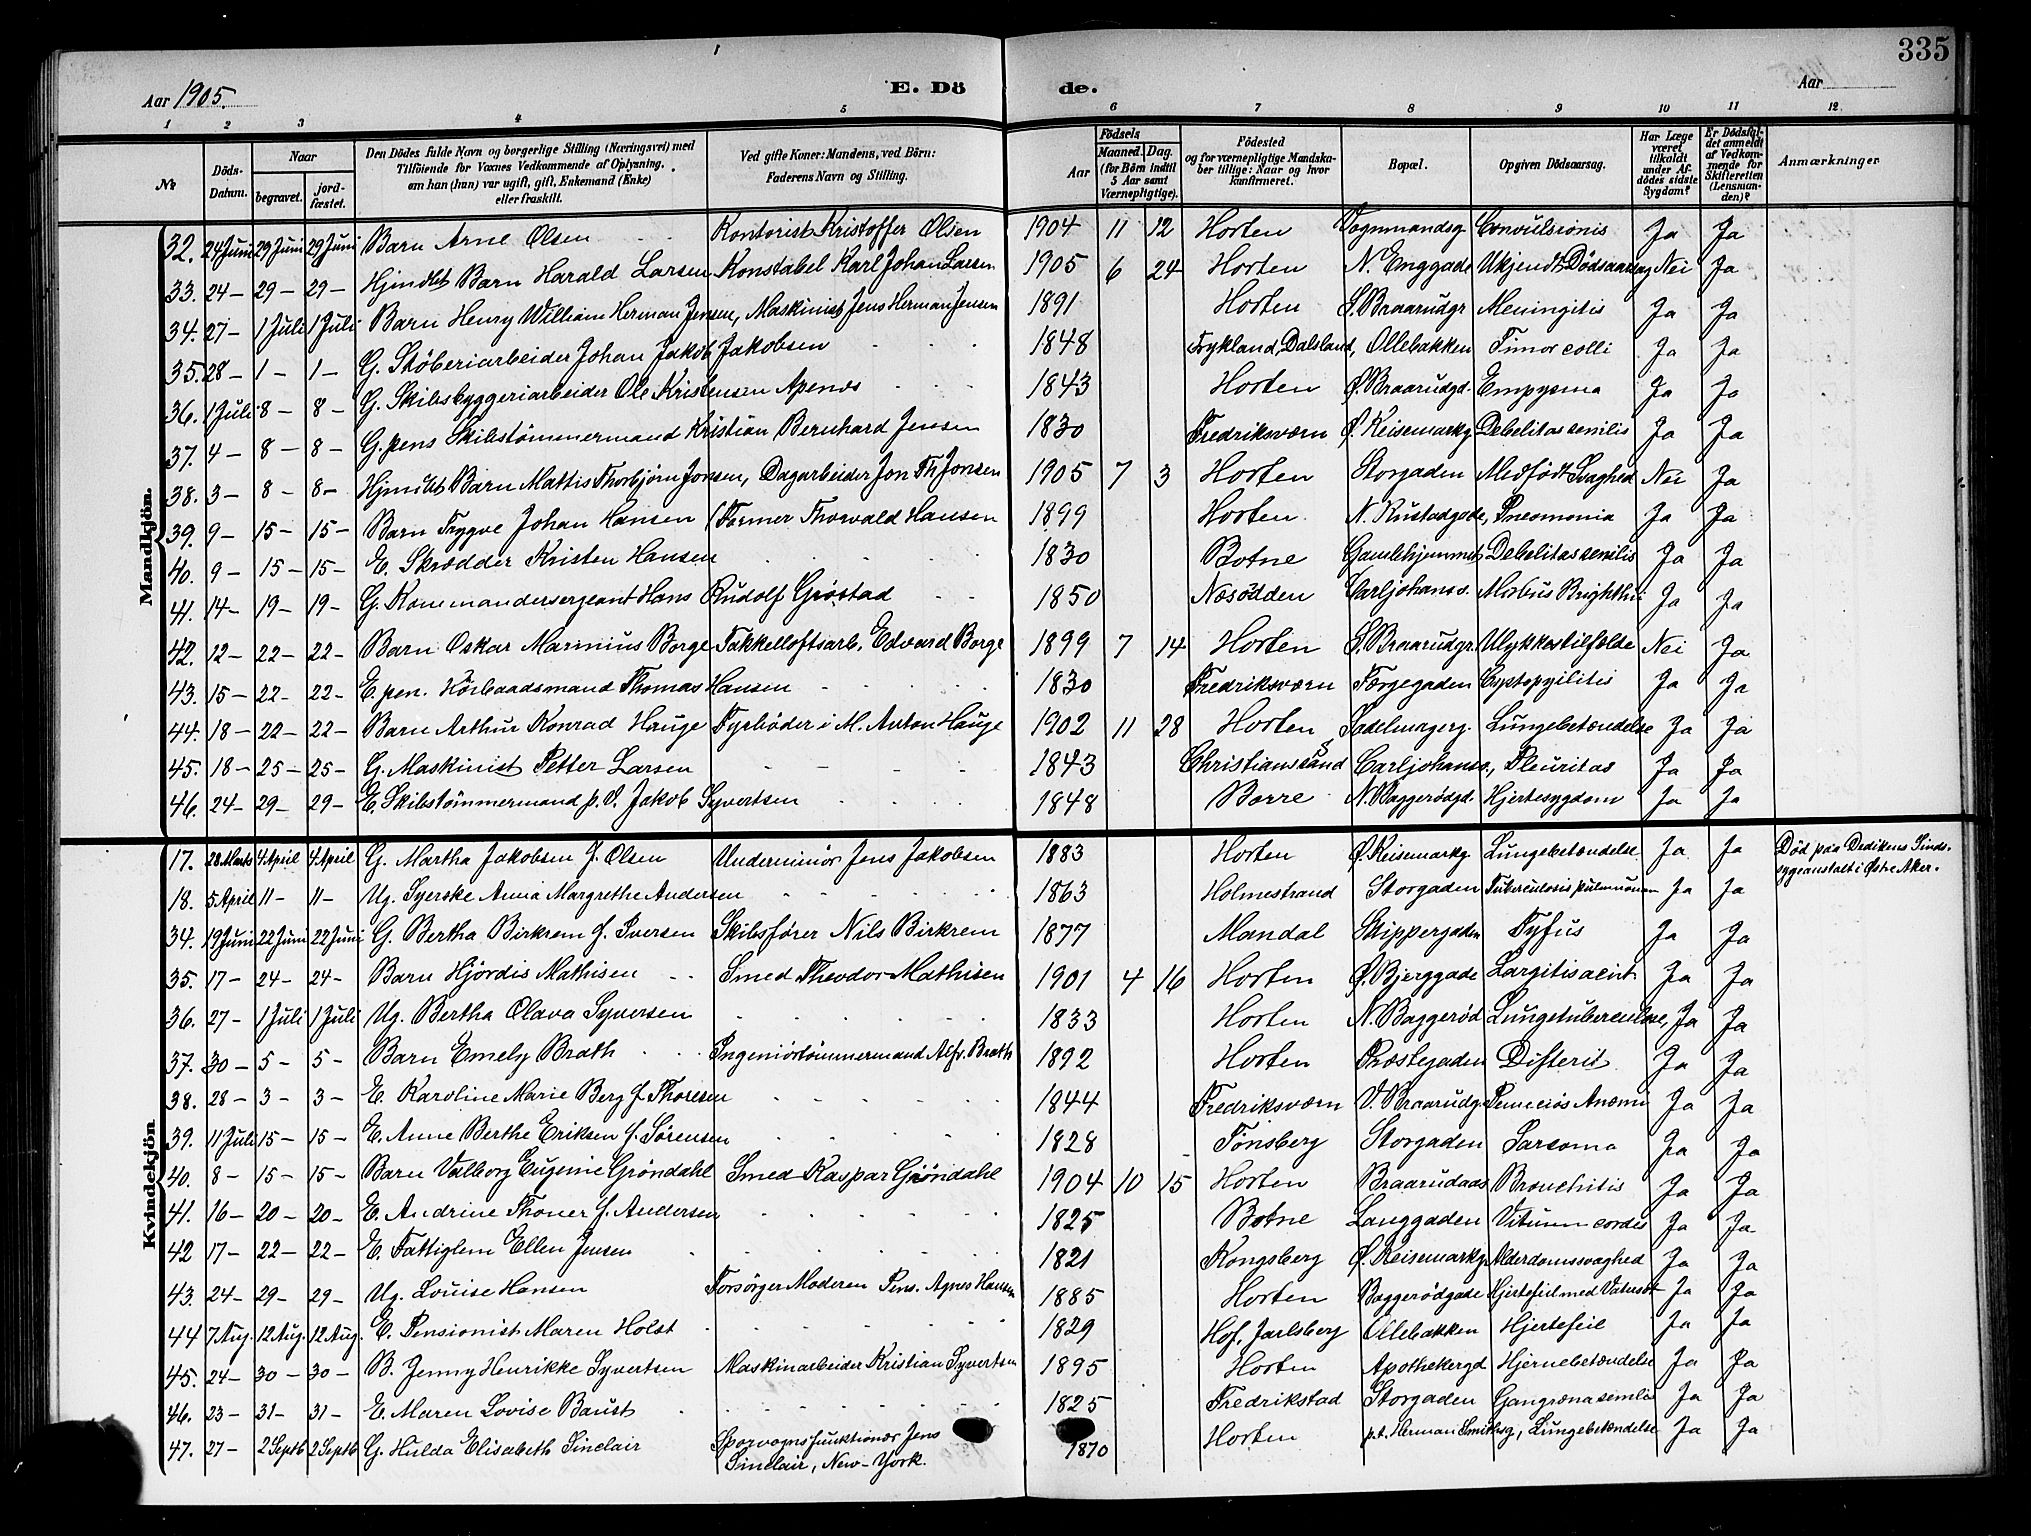 335
Aar 1905.
E. Dö de.
Aar
1 2 3 4 5 6 7 8 9 10 11 12
№
Döds-Datum.
Naar
begravet.
jord-fæstet.
Den Dödes fulde Navn og borgerlige Stilling (Næringsvei) med
Tilföiende for Voxnes Vedkommende af Oplysning,
om han (hun) var ugift, gift, Enkemand (Enke)
eller fraskilt.
Ved gifte Koner: Mandens, ved Börn:
Faderens Navn og Stilling.
Födsels
Aar
Maaned. Dag.
(for Börn indtil 5 Aar samt Værnepligtige).
Födested
og for værnepligtige Mandska-
ber tillige: Naar og hvor
konfirmeret.
Bopæl.
Opgiven Dödsaarsag.
Har Læge været tilkaldt under Af-dödes sidste Sygdom?
Er Dödsfal-det anmeldt af Vedkom-mende for Skifteretten (Lensman-den)?
Anmærkninger
Mandkjön.
32. 24 Juni 29 Juni 29 Juni Barn Arne Olsen Kontorist Kristoffer Olsen 1904 11 12 Horten Vognmandsg. Convulsionis Ja Ja
33. 24 – 29 – 29 – Hjmdbt Barn Harald Larsen Konstabel Karl Johan Larsen 1905 6 24 Horten N. Enggade Ukjendt Dödsaarsag Nei Ja
34. 27 – 1 Juli 1 Juli Barn Henry William Herman Jensen, Maskinist Jens Herman Jensen 1891 Horten S. Braarudgr Meningitis Ja Ja
35. 28 – 1 – 1 – G. Stöberiarbeider Johan Jakob Jakobsen 1848 Frykland, Dalsland, Ollebakken Timor colli Ja Ja
36. 1 Juli 8 – 8 – G. Skibsbyggeriarbeider Ole Kristensen Apenæs 1843 Horten Ø. Braarudgd. Empysma Ja Ja
37. 4 – 8 – 8 – G. pens Skibstömmermand Kristian Bernhard Jensen 1830 Fredriksværn Ø. Keisemarkg Debelitas senilis Ja Ja
38. 3 – 8 – 8 – Hjmdbt Barn Mattis Thorbjörn Jonsen, Dagarbeider Jon Th Jonsen 1905 7 3 Horten Storgaden Medfödt Svaghed Nei Ja
39. 9 – 15 – 15 – Barn Trygve Johan Hansen Former Thorvald Hansen 1899 Horten N. Rustadgade, Pneomonia Ja Ja
40. 9 – 15 – 15 – E. Skrædder Kristen Hansen 1830 Botne Gamlehjemmet Debelitas senilis Ja Ja
41. 14 – 19 – 19 – G. Konemandersergeant Hans Rudolf Gröstad 1850 Næsödden Carljohanss. Morbus Brighthii Ja Ja
42. 12 – 22 – 22 – Barn Oskar Marinius Borge Takkelloftsarb. Edvard Borge 1899 7 14 Horten S. Braarudgr. Ulykkestilfælde Nei Ja
43. 15 – 22 – 22 – E. pen. Thomas Hansen 1830 Fredriksværn Færgegaden Cystopyilitis Ja Ja
44. 18 – 22 – 22 – Barn Arthur Konrad Hauge Fyrböder i M. Anton Hauge 1902 11 28 Horten Sadelmagerg. Lungebetændelse Ja Ja
45. 18 – 25 – 25 – G. Maskinist Petter Larsen 1843 Christianssand Carljohanss., Pleuritas Ja Ja
46. 24 – 29 – 29 – E. Skibstömmermand p. V. Jakob Syvertsen 1848 Borre N. Baggerödgd. Hjertesygdom Ja Ja
Kvindekjön.
17. 28 Marts 4 April 4 April G. Martha Jakobsen f. Olsen Underminör Jens Jakobsen 1883 Horten Ø. Keisemarkg Lungebetændelse Ja Ja Död paa Dedikens Sinds-
sygeanstalt i Østre Aker.
18. 5 April 11 – 11 – Ug. Syerske Anna Margrethe Andersen 1863 Holmestrand Storgaden Tuberculosis pulmuonum Ja Ja
34. 19 Juni 22 Juni 22 Juni G. Bertha Birkrem f. Iversen Skibsförer Nils Birkrem 1877 Mandal Skippergaden Tyfus Ja Ja
35. 17 – 24 – 24 – Barn Hjördis Mathisen Smed Theodor Mathisen 1901 4 16 Horten Ø. Bjerggade Ja Ja
36. 27 – 1 Juli 1 Juli Ug. Bertha Olava Syversen 1833 Horten N. Baggeröd Lungetuberculose, Ja Ja
37. 30 – 5 – 5 – Barn Emely Brath Ingeniörtömmermand Alfr. Brath 1892 Horten Præstegaden Difterit Ja Ja
38. 28 – 3 – 3 – E. Karoline Marie Berg f. Thoresen 1844 Fredriksværn V. Braarudg. Perneciös Anæmi Ja Ja
39. 11 Juli 15 – 15 – E. Anne Berthe Eriksen f. Sörensen 1828 Tönsberg Storgaden Sarcoma Ja Ja
40. 8 – 15 – 15 – Barn Valborg Eugenie Gröndahl Smed Kaspar Gröndahl 1904 10 15 Horten Braarudaas Bronchitis Ja Ja
41. 16 – 20 – 20 – E. Andrine Thoner f. Andersen 1825 Botne Langgaden Vitium cordis Ja Ja
42 17 – 22 – 22 – E. Fattiglem Ellen Jensen 1821 Kongsberg Ø. Keisemarkg Alderdomssvaghed Ja Ja
43. 24 – 29 – 29 – Ug. Louise Hansen Forsörger Moderen Pens. Agnes Hansen 1885 Horten Baggerödgade Hjertefeil med Vatersot Ja Ja
44 7 Aug. 12 Aug. 12 Aug. E. Pensionist Maren Holst 1829 Hof, Jarlsberg Ollebakken Hjertefeil Ja Ja
45. 24 – 30 – 30 – B. Jenny Henrikke Syvertsen Maskinarbeider Kristian Syvertsen 1895 Horten Apothekergd Hjernebetændelse Ja Ja
46. 23 – 31 – 31 – E. Maren Lovise Baust 1825 Fredrikstad Storgaden Gangræna semilis Ja Ja
47. 27 – 2 Septb 2 Septb G. Hulda Elisabeth Sinclair Sporvognsfunktionær Jens
Sinclair, New-York. 1870 Horten p.t. Herman Smithsg, Lungebetændelse Ja Ja